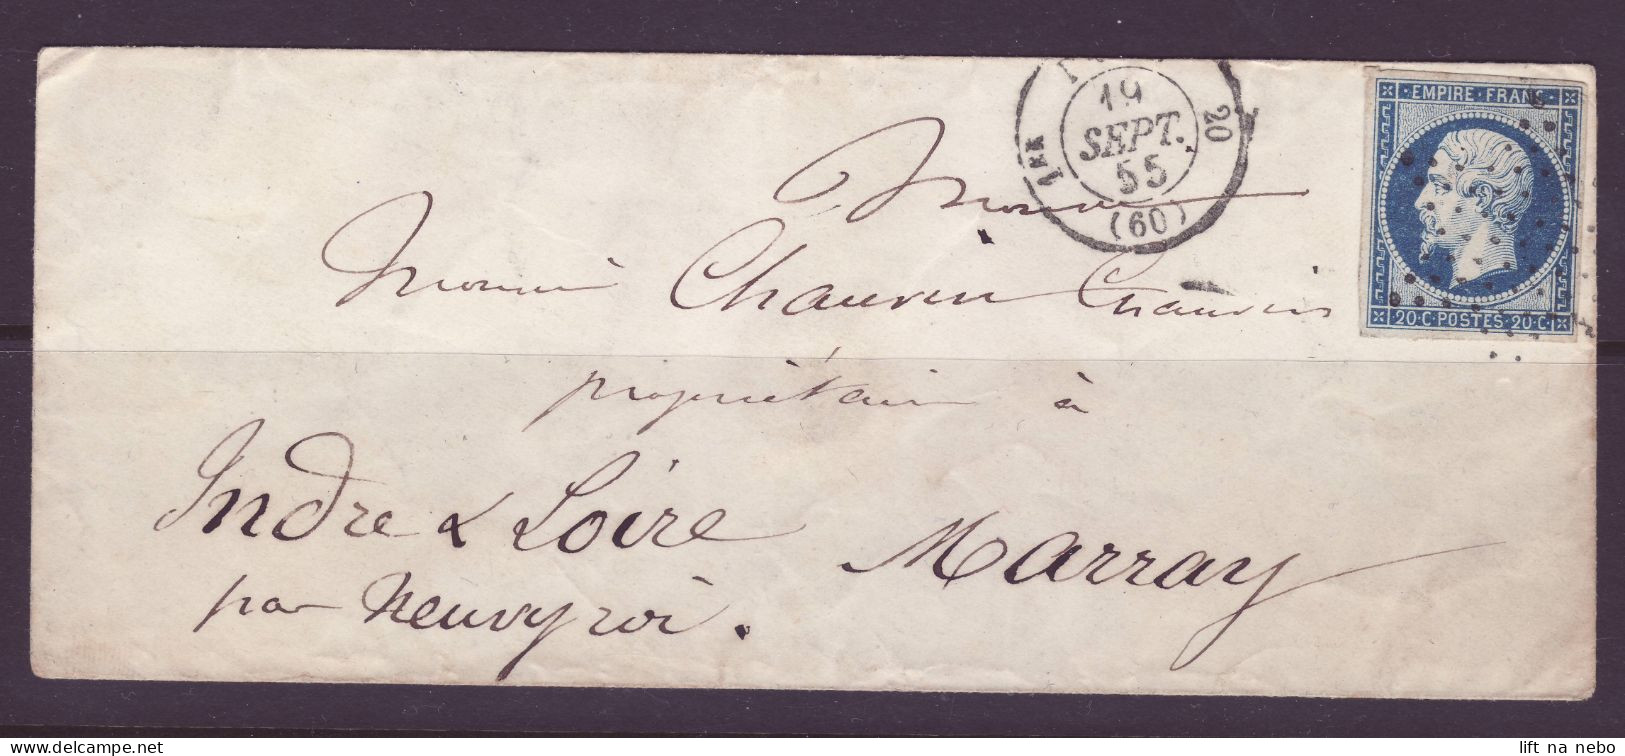 19
SEPT.
55
1ER
20
(60)
EMPIRE · FRANC
20·C·POSTES·20·C·
Monsieur
Monsieur Chauvin Chauvin
propriétaire à
Indre & Loire Marray
par Neuvy roi.
www.delcampe.net
lift na nebo